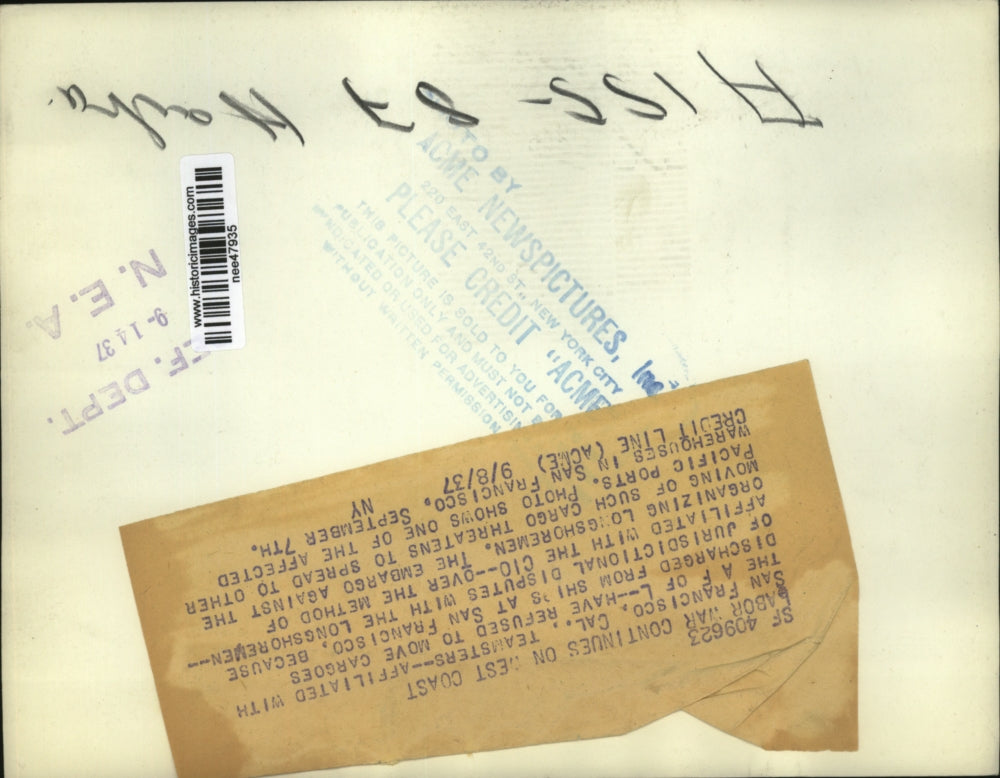 www.historicimages.com
nee47935
EF. DEPT.
9-14 37
N. E. A.
TO BY
ACME NEWSPICTURES, Inc.
220 EAST 42ND ST., NEW YORK CITY
PLEASE CREDIT "ACME
THIS PICTURE IS SOLD TO YOU FOR
PUBLICATION ONLY AND MUST NOT B
NDICATED OR USED FOR ADVERTISIN
WITHOUT WRITTEN PERMISSION
SF 409623
LABOR WAR CONTINUES ON WEST COAST
SAN FRANCISCO, CAL., TEAMSTERS--AFFILIATED WITH
THE A F OF L--HAVE REFUSED TO MOVE CARGOES
DISCHARGED FROM SHIPS AT SAN FRANCISCO, BECAUSE
OF JURISDICTIONAL DISPUTES WITH THE LONGSHOREMEN--
AFFILIATED WITH THE CIO--OVER THE METHOD OF
ORGANIZING LONGSHOREMEN. THE EMBARGO AGAINST THE
MOVING OF SUCH CARGO THREATENS TO SPREAD TO OTHER
PACIFIC PORTS. PHOTO SHOWS ONE OF THE AFFECTED
WAREHOUSES IN SAN FRANCISCO, SEPTEMBER 7TH.
CREDIT LINE (ACME) 9/8/37 NY